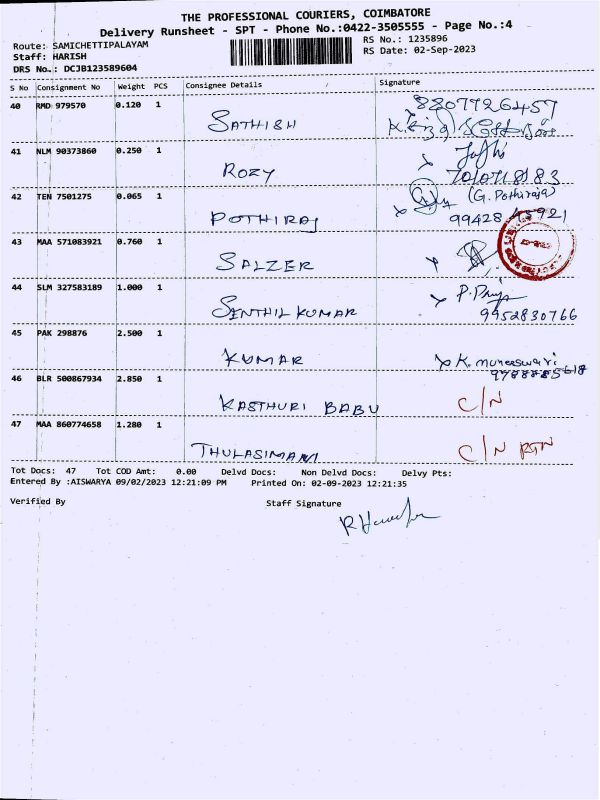 THE PROFESSIONAL COURIERS, COIMBATORE
Delivery Runsheet - SPT - Phone No.:0422-3505555 - Page No.:4
Route: SAMICHETTIPALAYAM RS No.: 1235896
Staff: HARISH RS Date: 02-Sep-2023
DRS No.: DCJB123589604
S No Consignment No Weight PCS Consignee Details Signature
40 RMD 979570 0.120 1 SATHISH 8807726457
41 NLM 90373860 0.250 1 ROZY
42 TEN 7501275 0.065 1 POTHIRAJ (G. Pothiraja)
99428
43 MAA 571083921 0.760 1 SALZER
44 SLM 327583189 1.000 1 SENTHIL KUMAR P. Priya
9952830766
45 PAK 298876 2.500 1 KUMAR K. muneeswari
46 BLR 500867934 2.850 1 KASTHURI BABU C/N
47 MAA 860774658 1.280 1 THULASIMANI C/N RTN
Tot Docs: 47 Tot COD Amt: 0.00 Delvd Docs: Non Delvd Docs: Delvy Pts:
Entered By :AISWARYA 09/02/2023 12:21:09 PM Printed On: 02-09-2023 12:21:35
Verified By Staff Signature